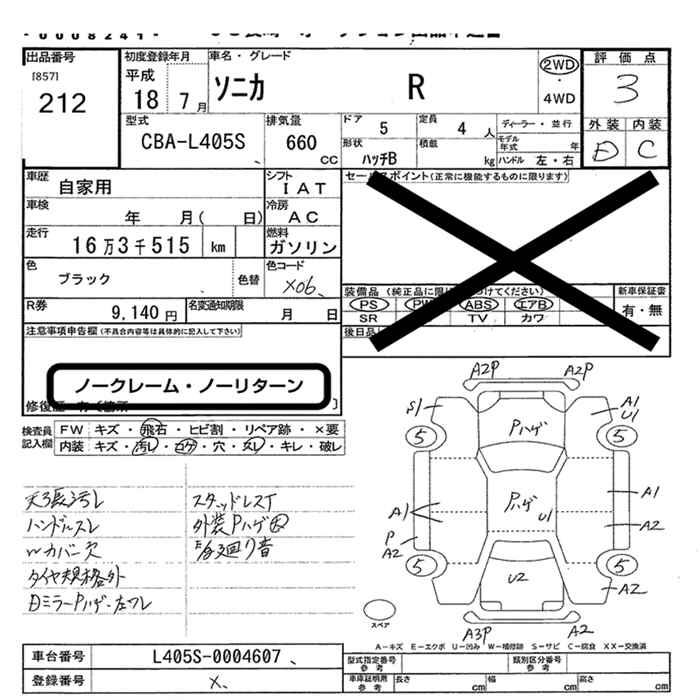 出品番号
[857]
212
初度登録年月
平成
18 7月
車名・グレード
ソニカ R
2WD
・
4WD
評価点
3
外装 内装
E C
型式
CBA-L405S
排気量
660
CC
ドア
5
定員
4 人
ディーラー・並行
モデル年式 年
形状
ハッチB
積載
kg
ハンドル 左・右
車歴
自家用
シフト
IAT
車検
年 月( 日)
冷房
AC
走行
16万3千515 km
燃料
ガソリン
色
ブラック
色替
色コード
X06
R券
9,140円
名変通知期限
月 日
セールスポイント(正常に機能するものに限ります)
新車保証書
有・無
PS PW ABS エアB
SR TV カワ
注意事項申告欄(不具合内容等は具体的に記入して下さい)
ノークレーム・ノーリターン
検査員
記入欄
FW キズ・飛石・ヒビ割・リペア跡・×要
内装 キズ・汚レ・コゲ・穴・スレ・キレ・破レ
天張汚レ
ハンドルスレ
Wカバー欠
タイヤ規格外
スタッドレスT
外装Pハゲ
A2P A2P
S1 A1
U1
5 5
Pハゲ
A1 A1
Pハゲ
U1
P
A2 A2
5 5
U2
A2
A3P A2
スペア
A-キズ E-エクボ U-凹み W-補修跡 S-サビ C-腐食 XX-交換済
車台番号
L405S-0004607
登録番号
X
型式指定番号
参考
類別区分番号
参考
車庫証明用
参考
長さ cm 幅 cm 高さ cm